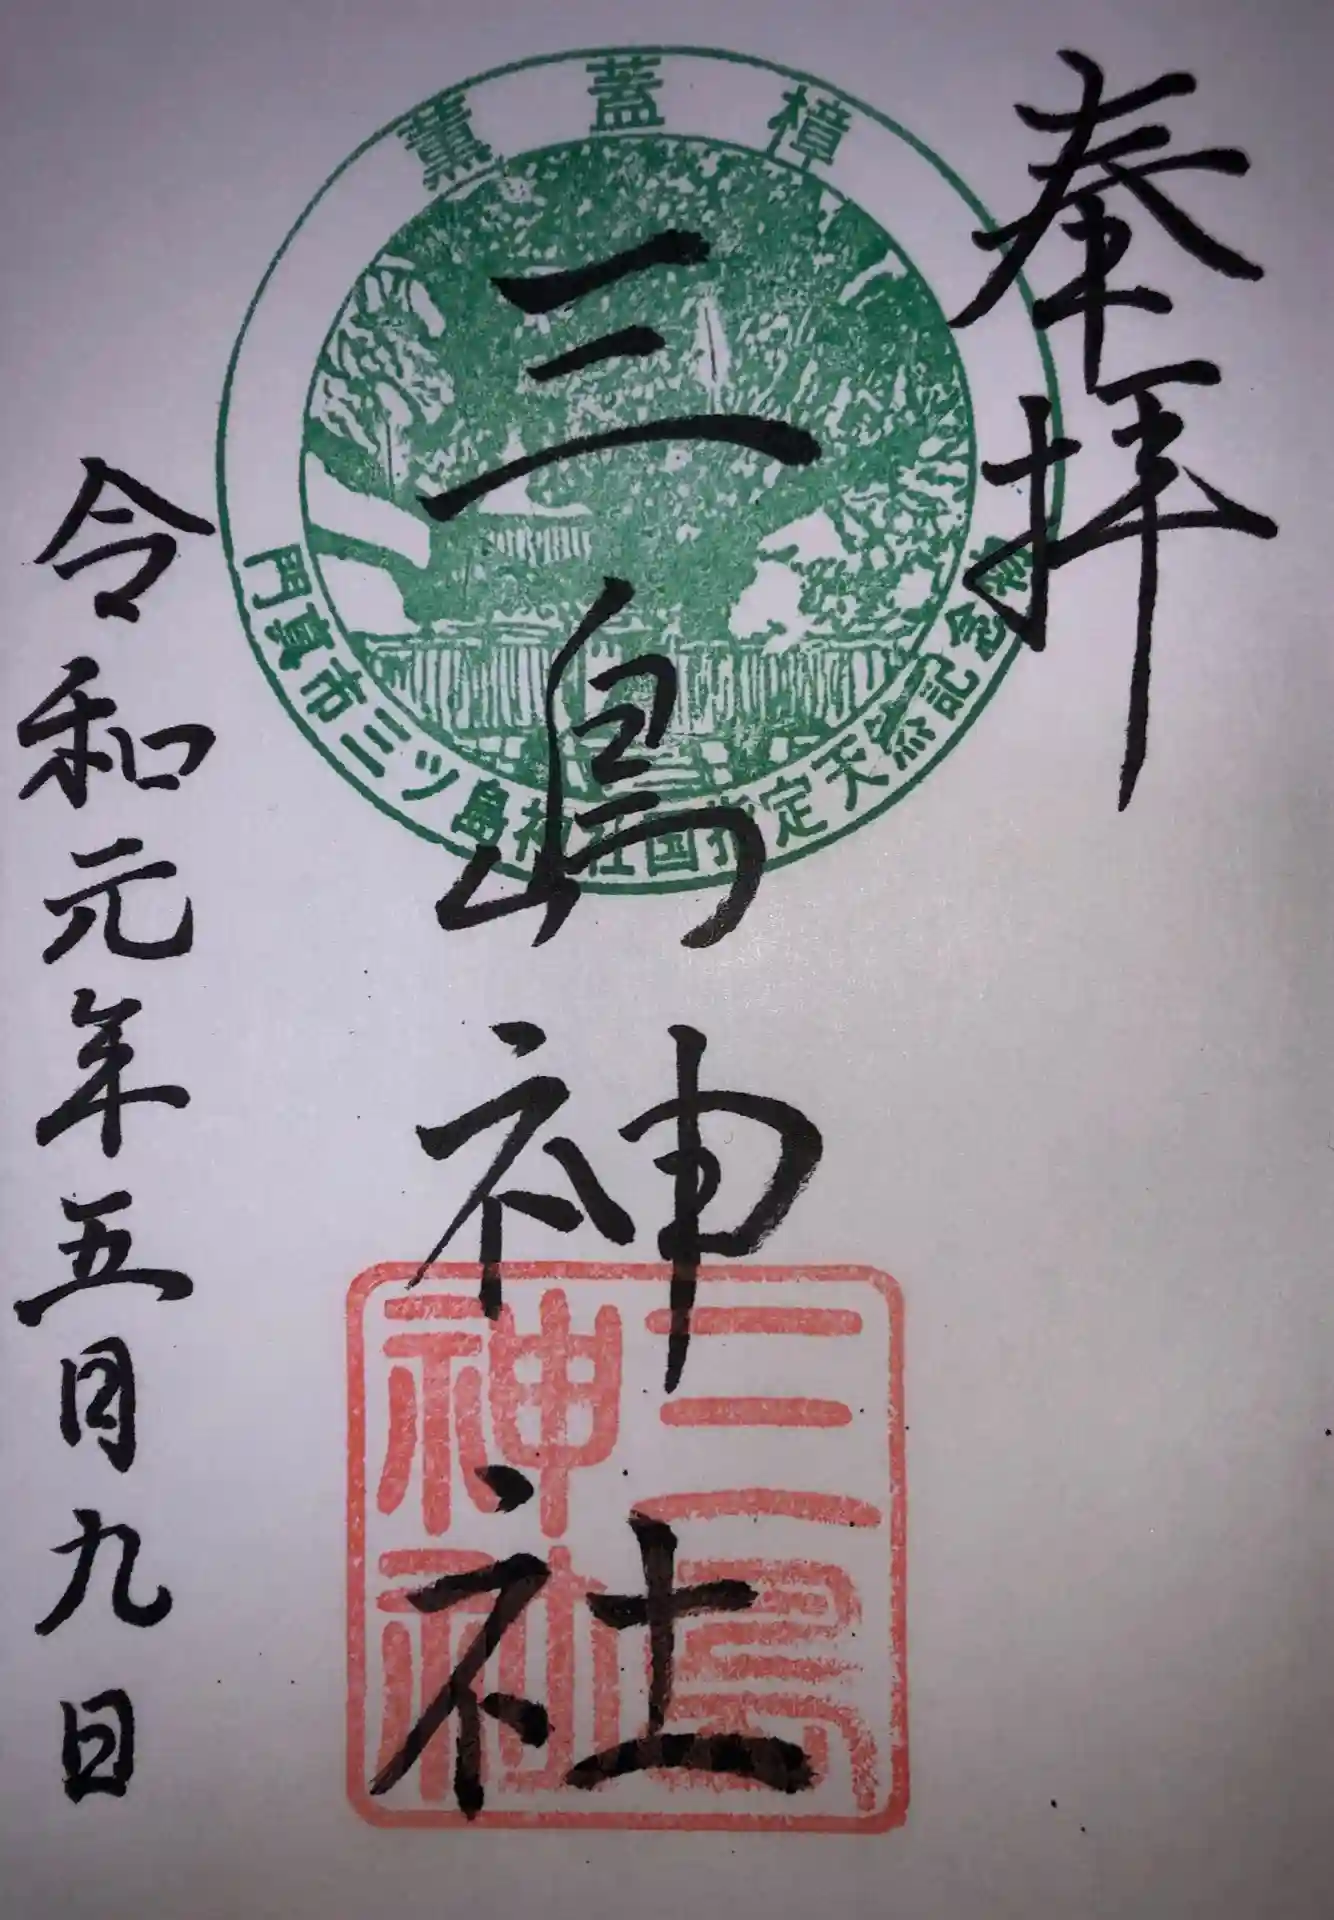 奉拝
薫蓋樟
三島神社
門真市三ツ島神社国指定天然記念物
三島神社
令和元年五月九日